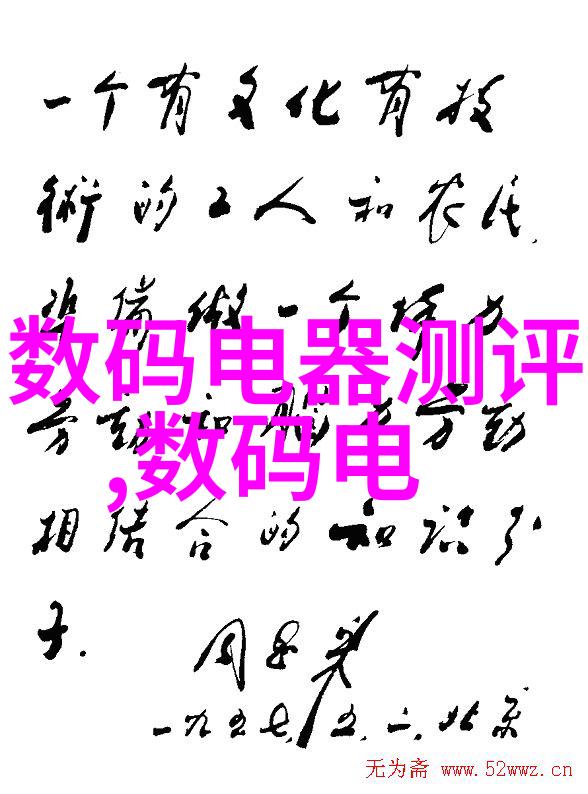 一个有文化有技
術的工人和农民,
準備做一个体力
数码电器测评
劳动和脑力劳动
,数码电
相结合的知识分
子.
周恩来
一九五七,五.二,北京
无为斋 www.52wwz.cn